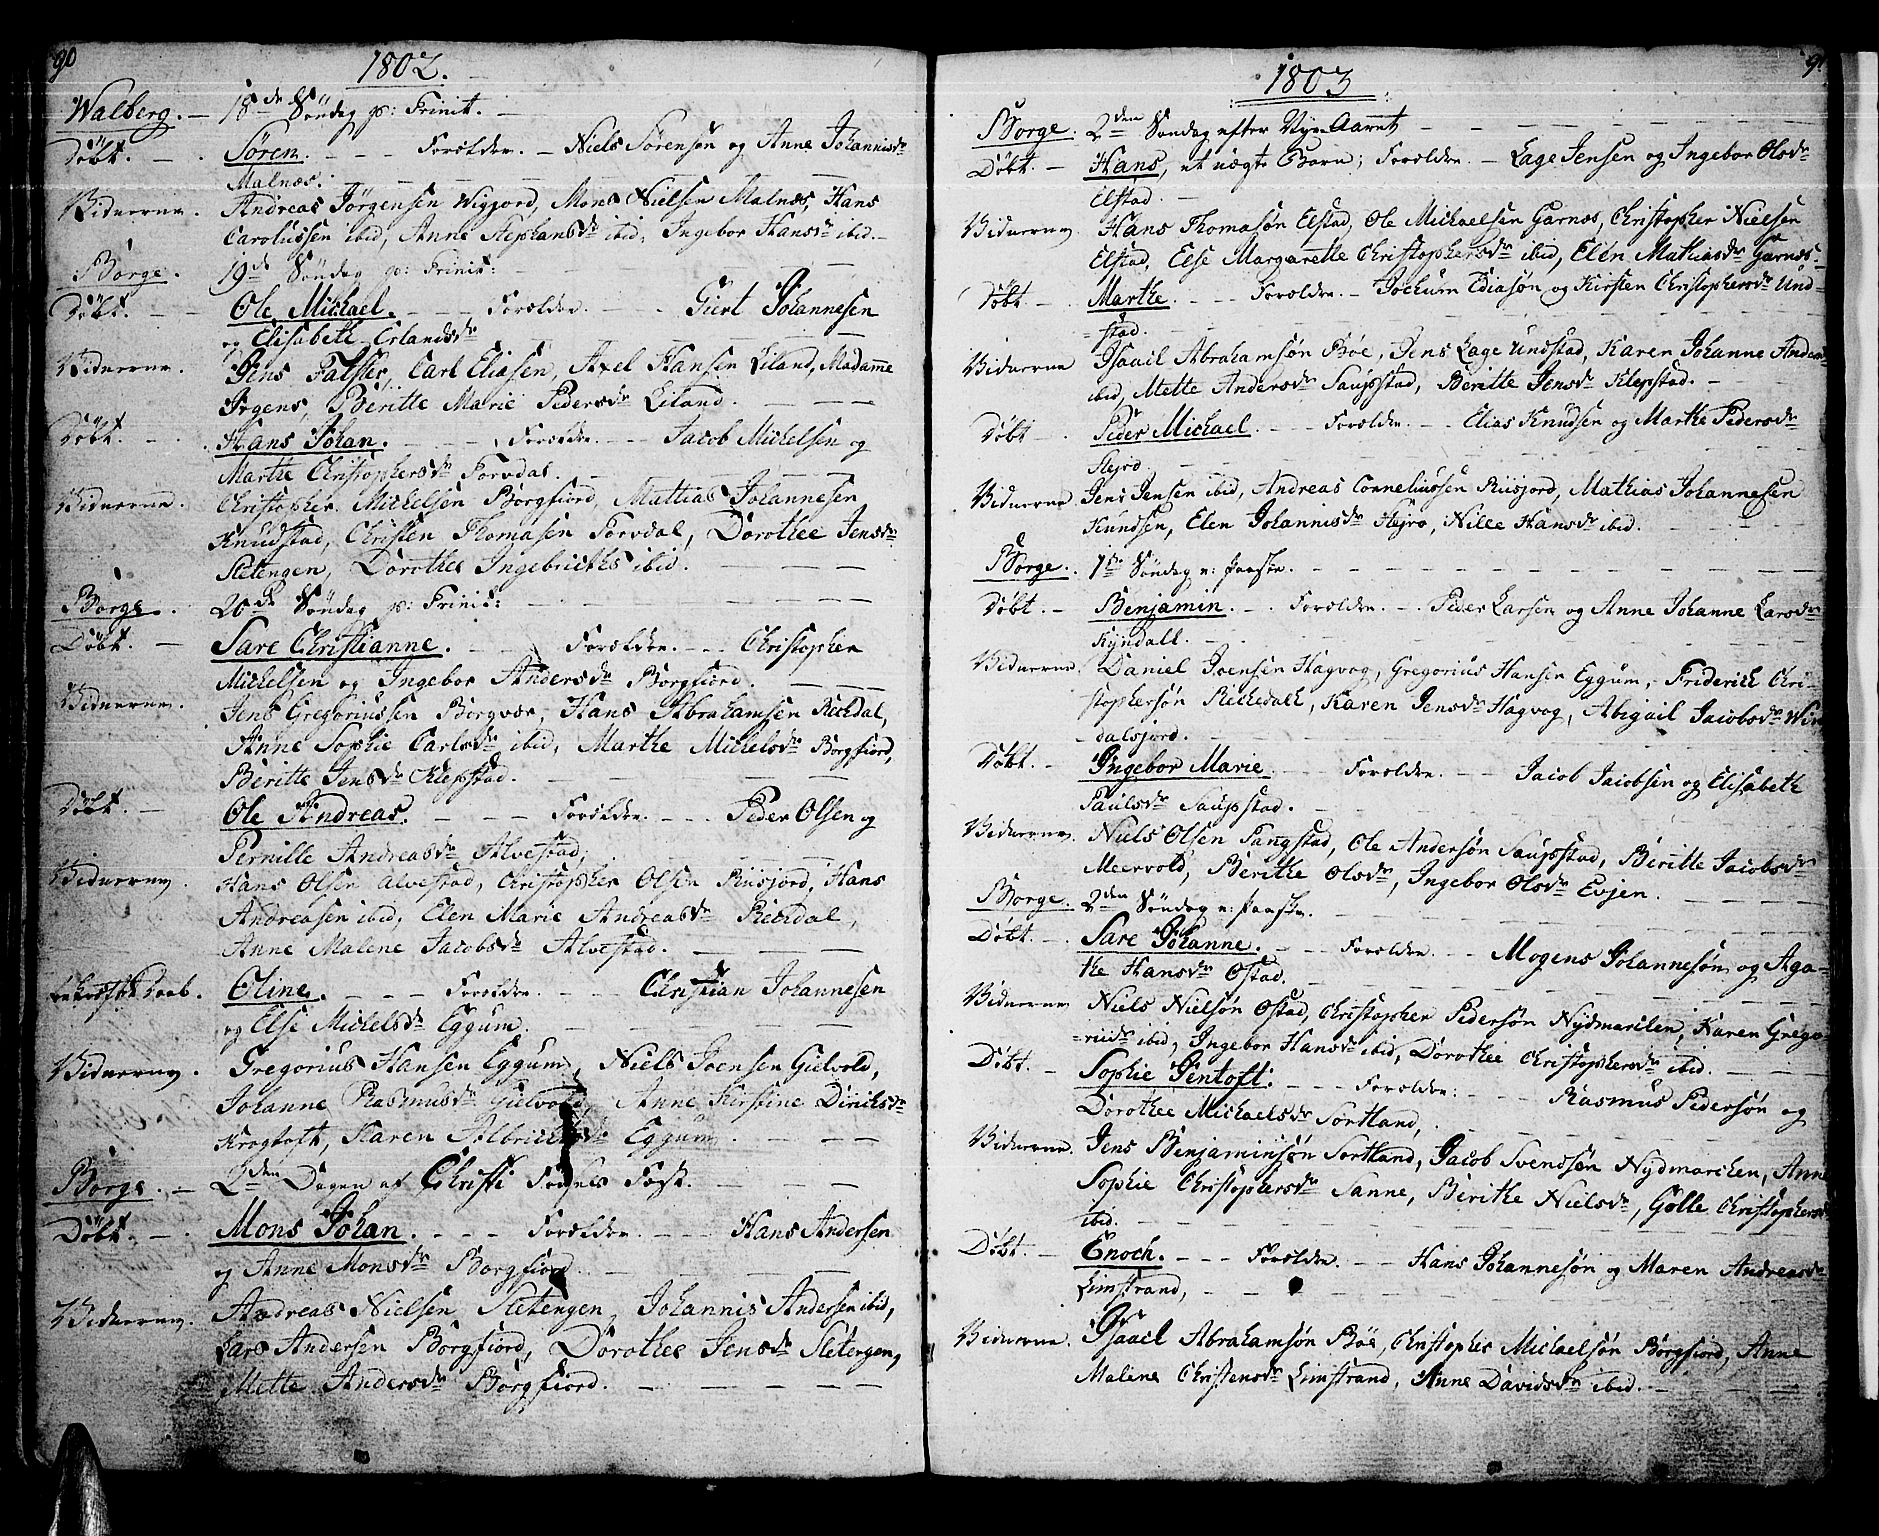 90
1802.
Walberg. — 18de Søndag p: Trinit. —
Døbt. — . Søren. — Forældre. — Niels Sørensøn og Anne Johannisdr
Malnæs. —
Vidnerne. Andreas Jørgensen Wigjord, Mons Nielsen Malnæs, Hans
Carolussen ibid, Anne Stephansdr ibid, Ingebor Hansdr ibid. —
Borge. 19de Søndag p: Trinit: —
Døbt. — Ole Michael. — Forældre. — Giert Johannesen
og Elisabeth Erlandsdr
Vidnerne. Jens Falster, Carl Eliasen, Axel Hansen Liland, Madamme
Irgens, Beritte Marie Pedersdr Liland. —
Døbt. — Hans Johan. — Forældre. — Jacob Michelsen og
Marthe Christophersdr Torvdal. —
Vidnerne. Christopher Michelsen Borgfiord, Mattias Johannesen
Knudstad, Christen Thomasen Torvdal, Dorothee Jensdr
Sletengen, Dorothes Ingebrieths ibid. —
Borge. 20de Søndag p: Trinit: —
Døbt. — Sare Christianne. — Forældre. — Christopher
Michelsen og Ingebor Andersdr Borgfiord. —
Vidnerne. Jens Gregoriussen Borgvær, Hans Abrahamsen Rechdal,
Anne Sophie Carlsdr ibid, Marthe Michelsdr Borgfiord,
Beritte Jensdr Klepstad. —
Døbt. — Ole Andreas. — Forældre. — Peder Olsen og
Pernille Andreasdr Alvestad; —
Vidnerne. Hans Olsen Alvestad, Christopher Olsen Riisjord, Hans
Andreasen ibid, Elen Marie Andreasdr Rechdal,
Anne Malene Jacobsdr Alvestad. —
Daab. Eline. — Forældre. — Christian Johannesen
og Else Michelsdr Eggum. —
Vidnerne. Gregorius Hansen Eggum, Niels Joensen Gielvold,
Johanne Rasmusdr Gielvold, Anne Kirstine Dinichsdr
Krogtoft, Karen Eggum. —
Borge. — 2den Dagen af Christi Fødsels Fest. —
Døbt. — Mons Johan. — Forældre. — Hans Andersen
og Anne Monsdr Borgfiord. —
Vidnerne. Andreas Nielsen Sletengen, Johannis Andersen ibid,
Lars Andersen Borgfiord, Dorothee Jensdr Sletengen,
Mette Andersdr Borgfiord. —
1803
Borge. 2den Søndag efter Nye-Aaret —
Døbt. — Hans, et uægte Barn; Forældre. — Lage Jensen og Ingebor Olsdr
Elstad. —
Vidnerne. Hans Thomasøn Elstad, Ole Michaelsen Garnæs, Christopher Nielsen
Elstad, Else Margarethe Christophersdr ibid, Elen Mathiasdr Garnæs. —
Døbt. — Marthe. — Forældre. — Jochum Ediasøn og Kirsten Christophersdr Und-
stad. —
Vidnerne Isaail Abrahamsøn Bøe, Jens Lage Undstad, Karen Johanne Anders
ibid, Mette Andersdr Saupstad, Beritte Jensdr Klepstad. —
Døbt. Peder Michael. — Forældre. — Elias Knudsen og Marthe Pedersdr
Steiro. —
Vidnerne Jens Jensen ibid, Andreas Corneliussen Riisjord, Mathias Johannesen
Knudsen, Elen Johannisdr Steiro, Nille Hansdr ibid. —
Borge. 1ste Søndag e: Paaske. —
Døbt. — Benjamin. — Forældre. — Peder Larsen og Anne Johanne Larsdr
Kyndall. —
Vidnerne. Daniel Joensen Hagvog, Gregorius Hansen Eggum, Friderich Chri-
stophersøn Rekkedall, Karen Jensdr Hagvog, Abigail Jacobsdr Win
dalsjord. —
Døbt. — Ingebor Marie — Forældre. — Jacob Jacobsen og Elisabeth
Paulsdr Saupstad. —
Vidnerne. Niels Olsen Pangstad, Ole Andersøn Saupstad, Beritte Jacobsdr
Meervold, Berithe Olsdr, Ingebor Olsdr Evjen. —
Borge. 2den Søndag e: Paaske. —
Døbt. — Sare Johanne. — Forældre. — Mogens Johannesøn og Aga-
the Hansdr Ostad. —
Vidnerne Niels Nielsøn Ostad, Christopher Pedersøn Nydmarchen, Karen Grego-
riidr ibid, Ingebor Hansdr ibid, Dorothee Christophersdr ibid. —
Døbt. — Sophie Gentoft. — Forældre: — Rasmus Pedersøn og
Dorothee Michaelsdr Sortland, —
Vidnerne. Jens Benjaminsøn Sortland, Jacob Svendsøn Nydmarchen, Anne
Sophie Christophersdr Sanne, Berithe Nielsdr, Golle Christophersdr
ibid. —
Døbt. — Enoch. — Forældre. — Hans Johannesøn og Maren Andreasdr
Limstrand, —
Vidnerne. Isaail Abrahamsøn Bøe, Christopher Michaelsøn Borgfiord, Anne
Malene Christensdr Limstrand, Anne Davidsdr ibid. —